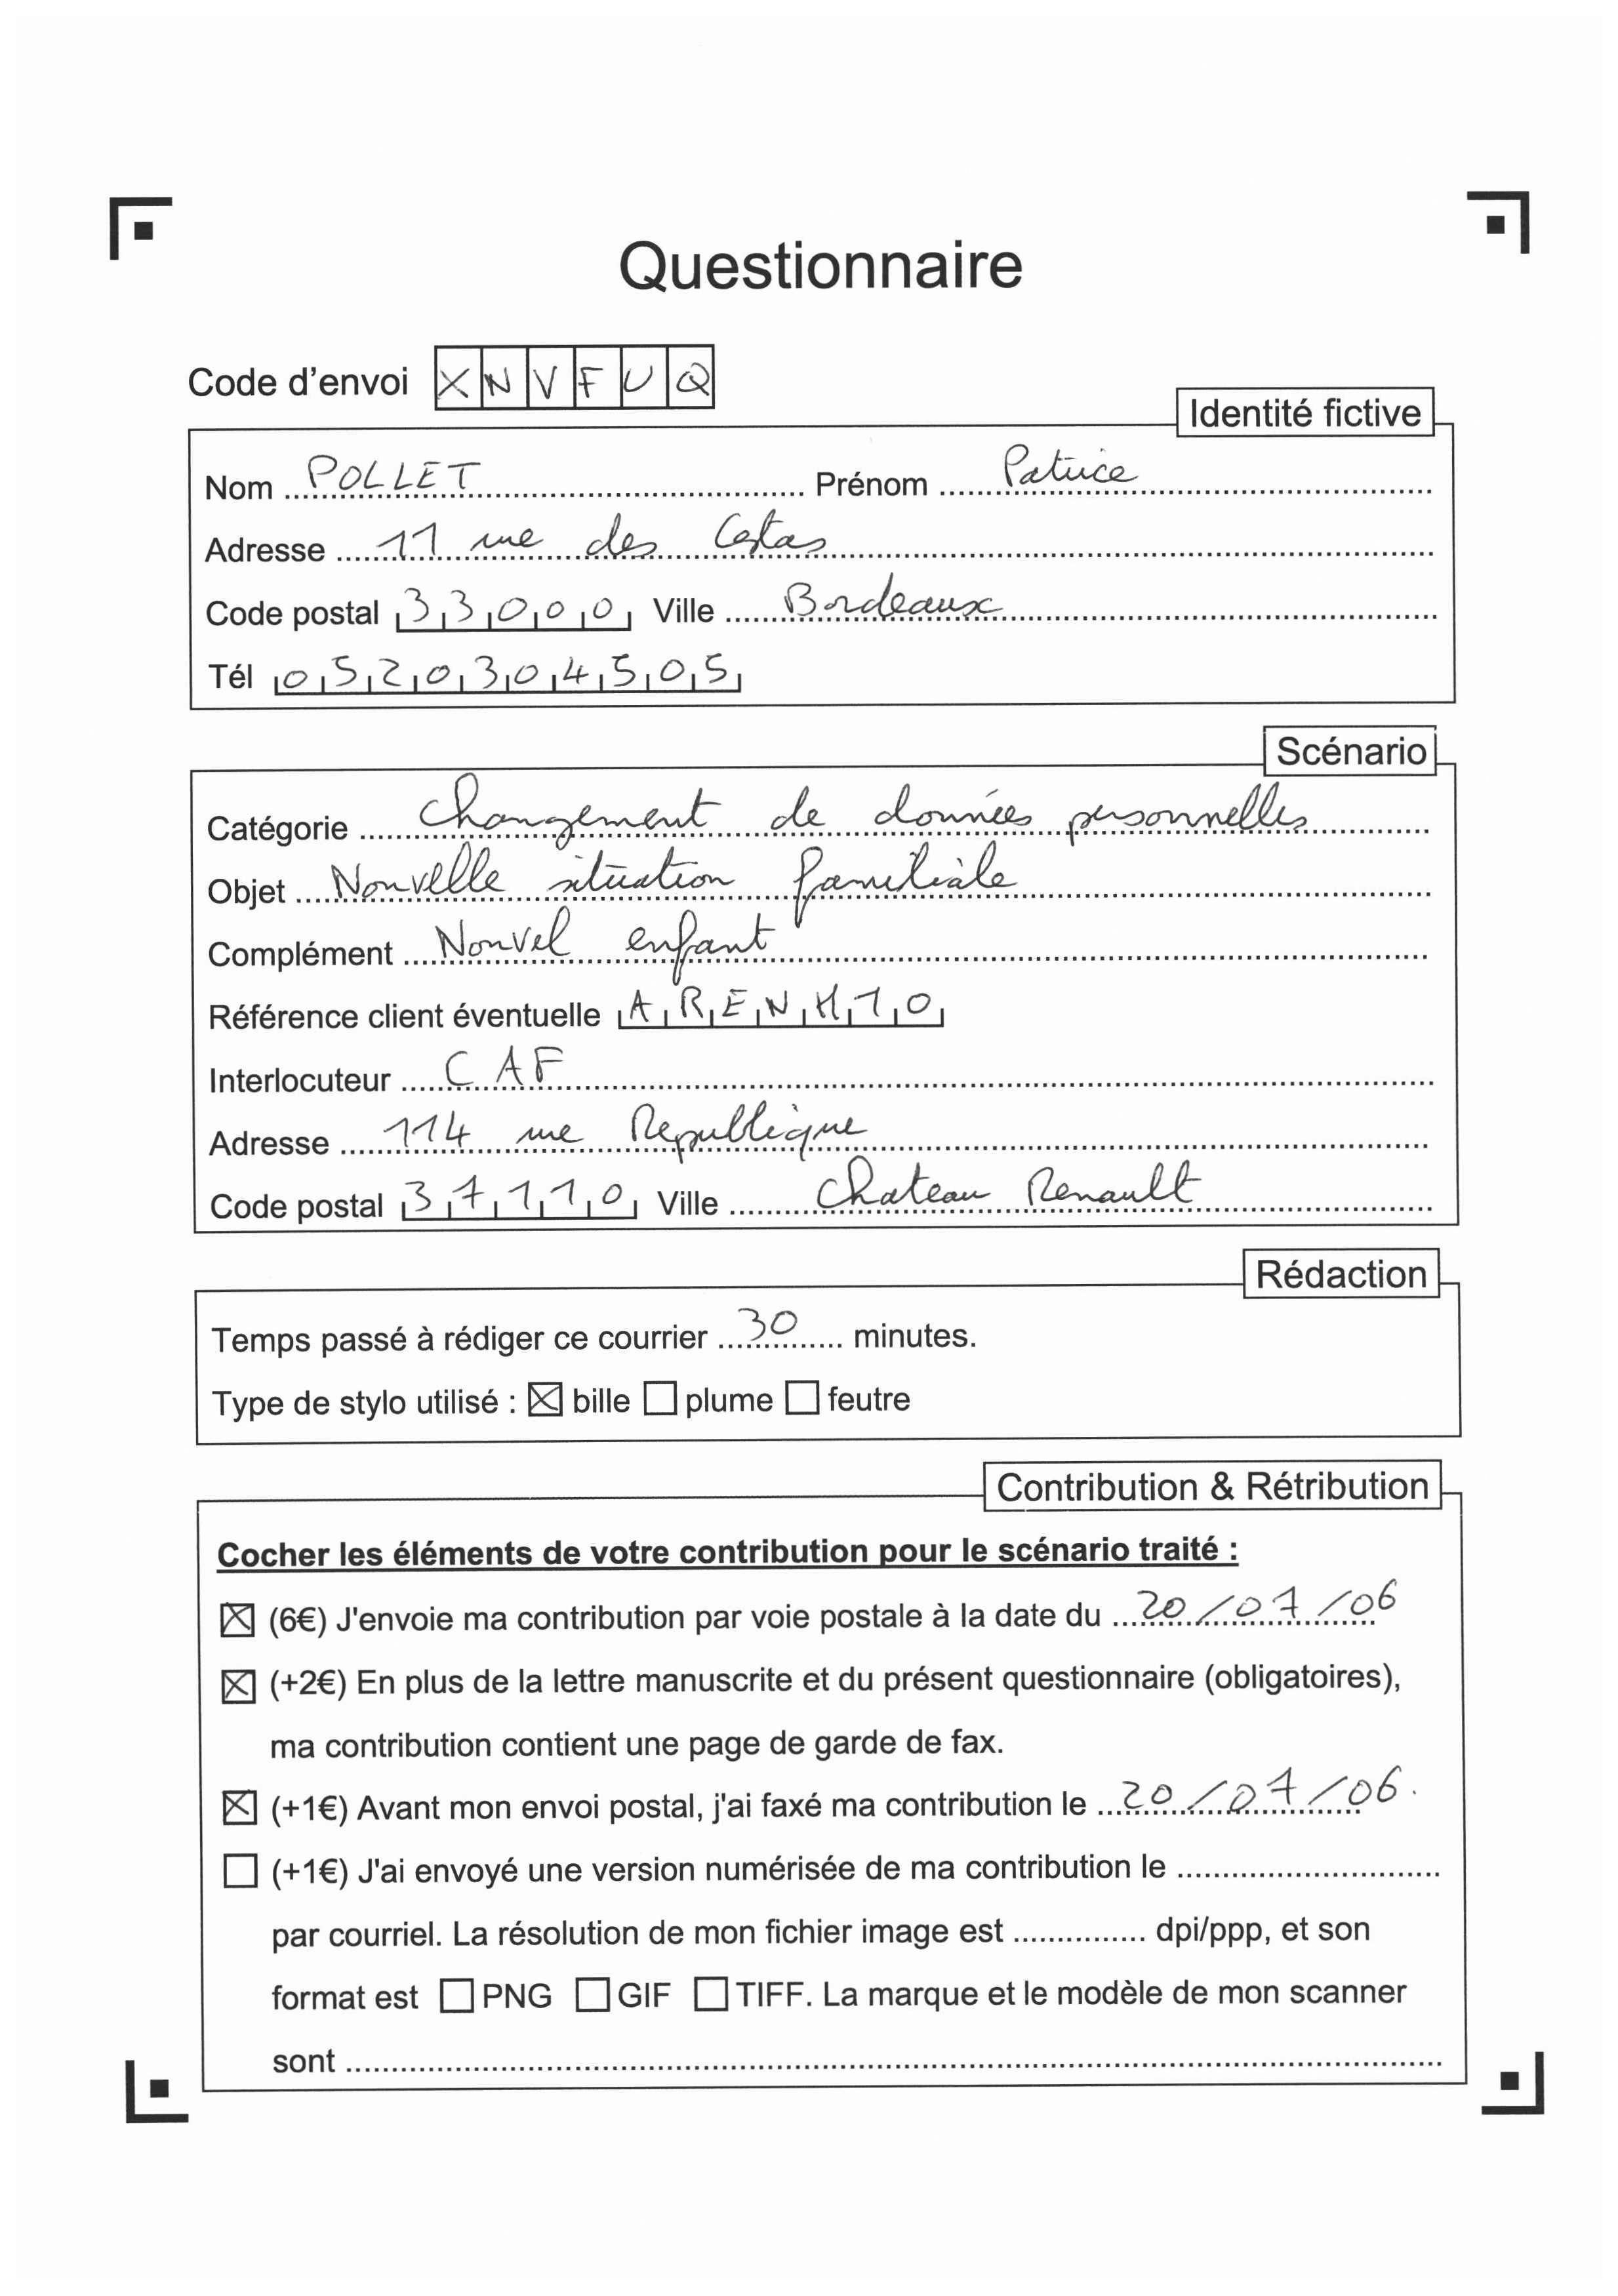 Questionnaire
Code d'envoi X N V F U Q
Identité fictive
Nom POLLET Prénom Patrice
Adresse 11 rue des Cestas
Code postal 33000 Ville Bordeaux
Tél 0520304505
Scénario
Catégorie changement de données personnelles
Objet Nouvelle situation familiale
Complément Nouvel enfant
Référence client éventuelle ARENH10
Interlocuteur CAF
Adresse 114 rue Republique
Code postal 37110 Ville Chateau Renault
Rédaction
Temps passé à rédiger ce courrier 30 minutes.
Type de stylo utilisé : ☒ bille ☐ plume ☐ feutre
Contribution & Rétribution
Cocher les éléments de votre contribution pour le scénario traité :
☒ (6€) J'envoie ma contribution par voie postale à la date du 20/07/06
☒ (+2€) En plus de la lettre manuscrite et du présent questionnaire (obligatoires),
ma contribution contient une page de garde de fax.
☒ (+1€) Avant mon envoi postal, j'ai faxé ma contribution le 20/07/06.
☐ (+1€) J'ai envoyé une version numérisée de ma contribution le
par courriel. La résolution de mon fichier image est .............. dpi/ppp, et son
format est ☐ PNG ☐ GIF ☐ TIFF. La marque et le modèle de mon scanner
sont